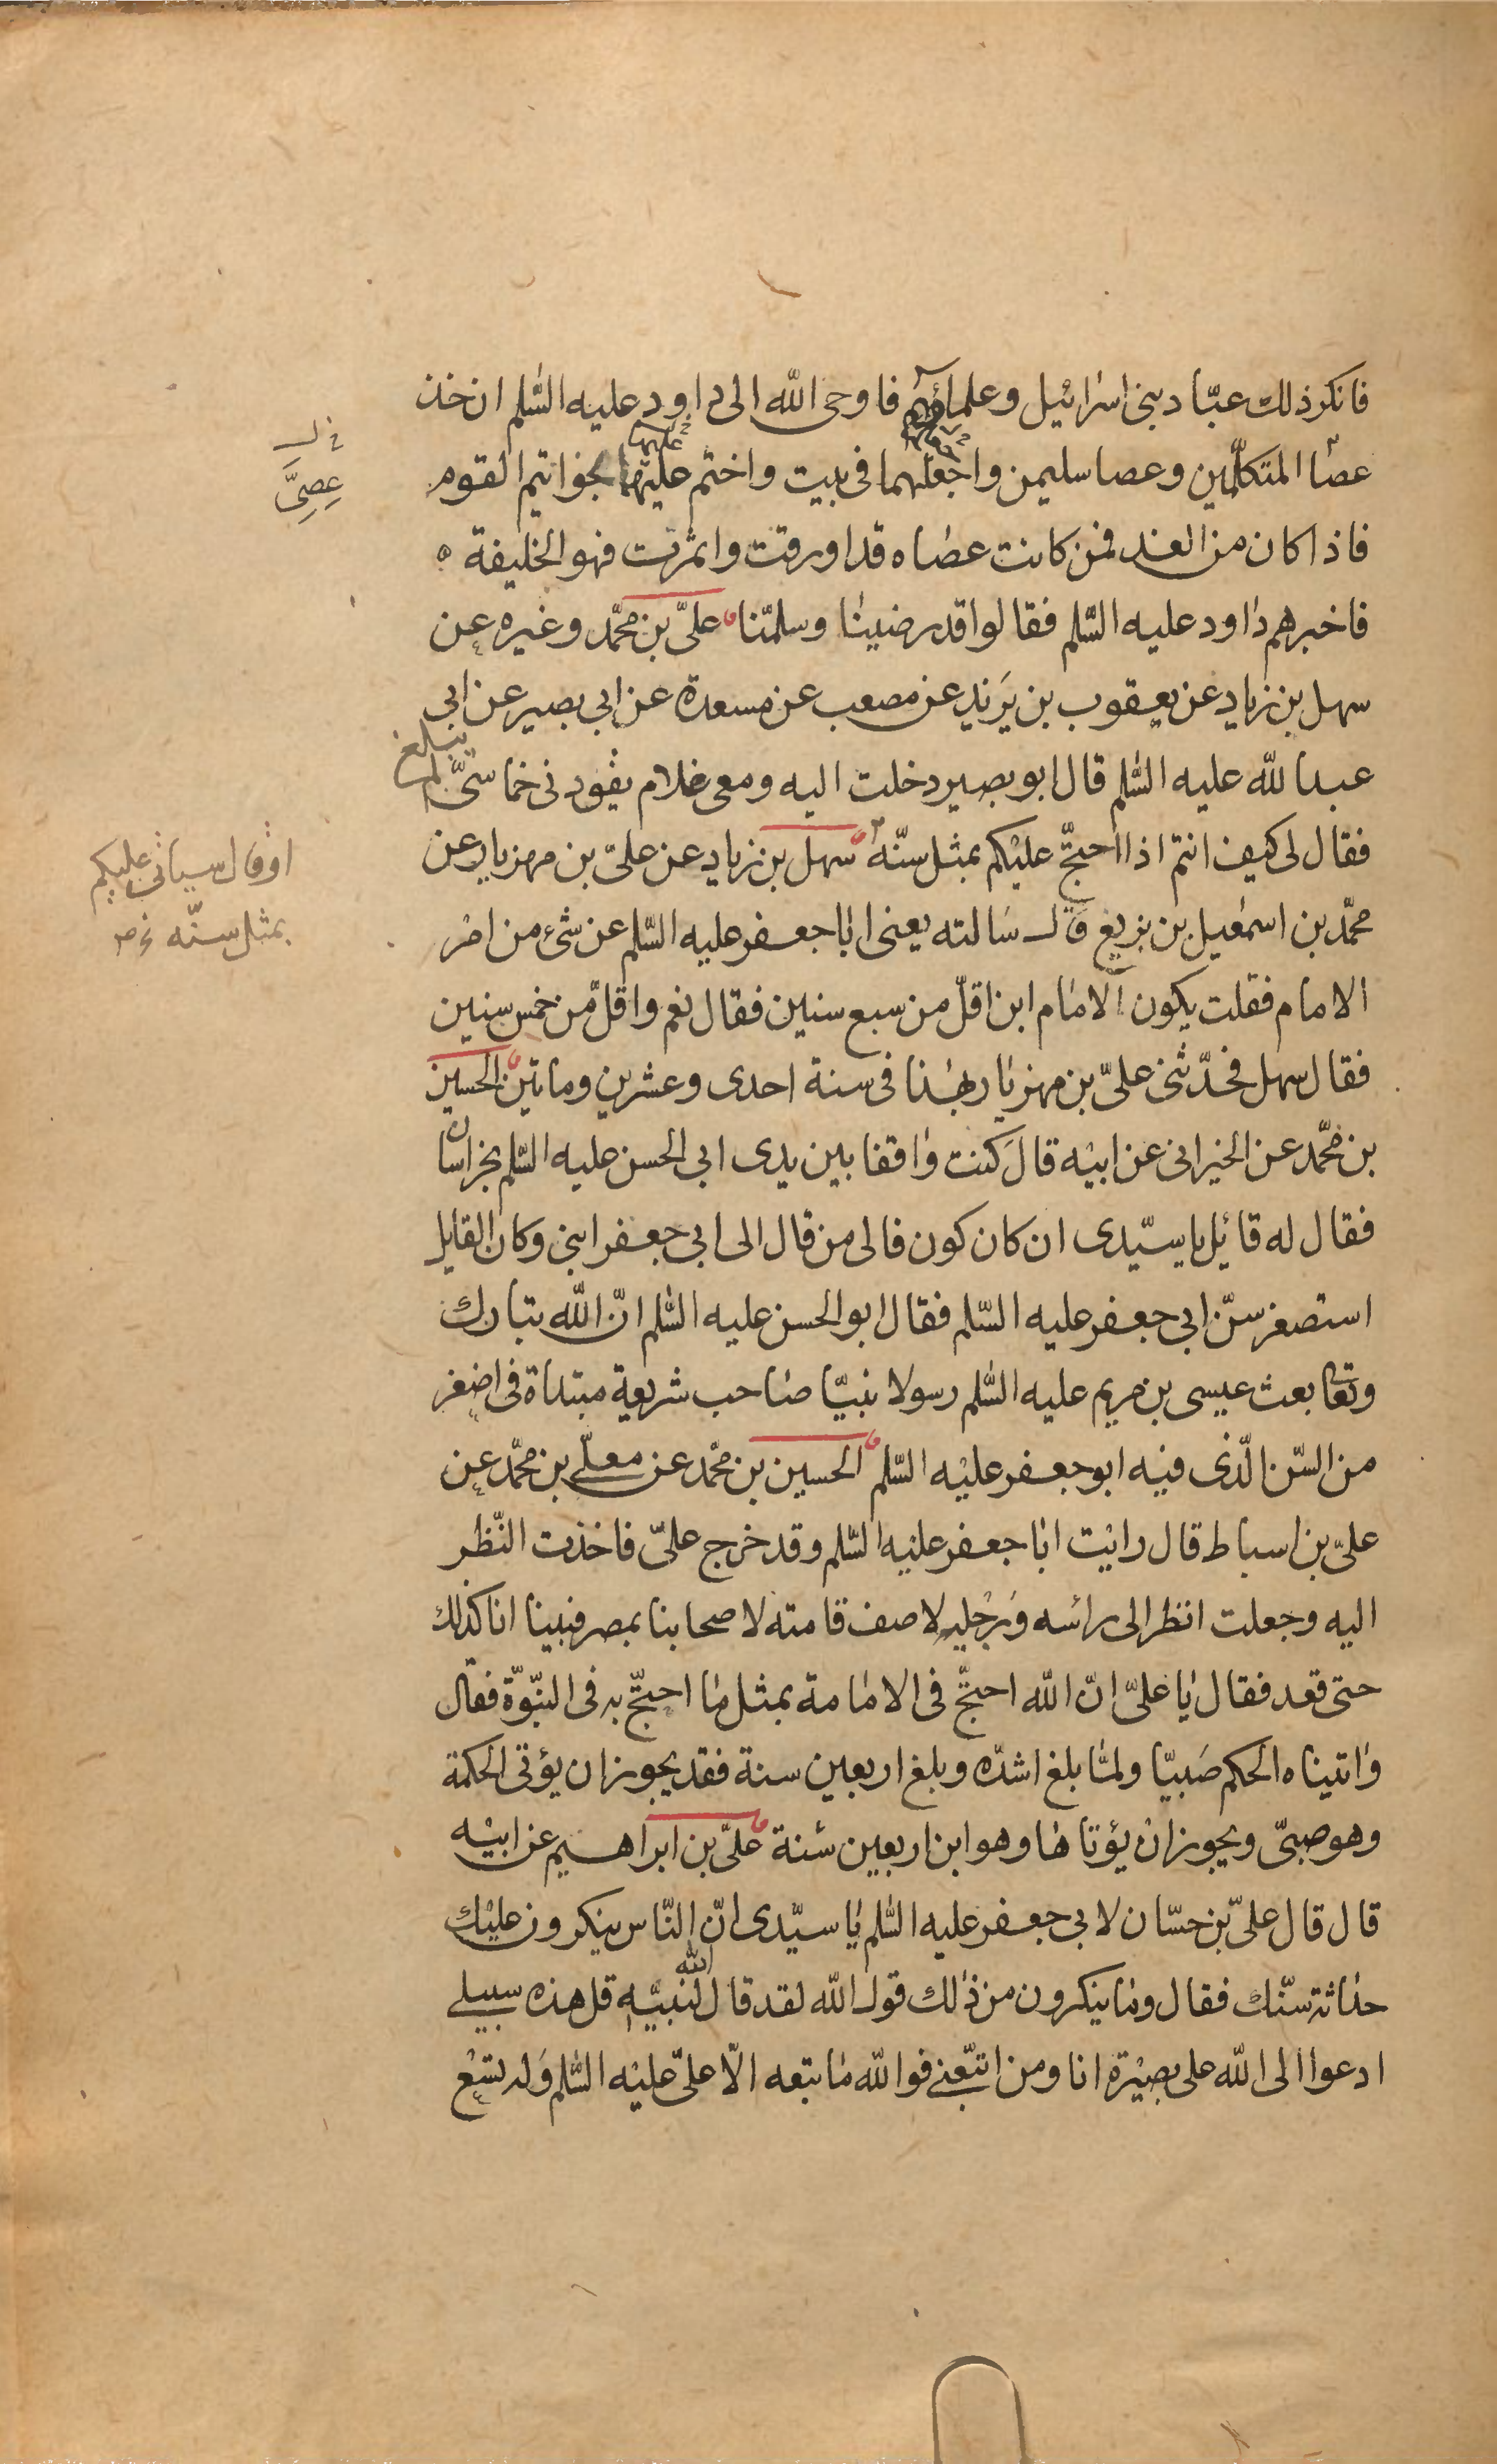 فانكر ذلك عبّاد بنى اسرائيل وعلماؤهم فاوحى الله الى داود عليه السّلم ان خذ
عصا المتكلّمين وعصا سليمن واجعلهما فى بيت واختم عليهما بخواتيم القوم
عليها
فاذا كان من الغد فمن كانت عصاه قد اورقت واثمرت فهو الخليفة
فاخبرهم داود عليه السّلم فقالوا قد رضينا وسلمّنا علىّ بن محمّد وغيره عن
سهل بن زياد عن يعقوب بن يَزيد عن مصعب عن مسعدة عن ابى بصير عن ابى
عبد الله عليه السّلم قال ابو بصير دخلت اليه ومعى غلام يقودنى خماسىّ لم يبلغ
فقال لى كيف انتم اذا احتجّ عليكم بمثل سنّه سهل بن زياد عن علىّ بن مهزيار عن
محمّد بن اسمعيل بن بزيع قال سالته يعنى ابا جعفر عليه السّلم عن شئ من امر
الامام فقلت يكون الامام ابن اقلّ من سبع سنين فقال نعم واقلّ من خمس سنين
فقال سهل فحدّثنى علىّ بن مهزيار بهذا فى سنة احدى وعشرين وماتين الحسين
بن محمّد عن الخيرانى عن ابيه قال كنت واقفا بين يدى ابى الحسن عليه السّلم بخراسان
فقال له قائل يا سيّدى ان كان كون فالى من قال الى ابى جعفر ابنى وكان القايل
استصغر سنّ ابى جعفر عليه السّلم فقال ابو الحسن عليه السّلم انّ الله تبارك
وتعا بعث عيسى بن مريم عليه السّلم رسولا نبيّا صاحب شريعة مبتداة فى اصغر
من السّن الّذى فيه ابو جعفر عليه السّلم الحسين بن محمّد عن معلّى بن محمّد عن
علىّ بن اسباط قال رايت ابا جعفر عليه السّلم وقد خرج علىّ فاخذت النّظر
اليه وجعلت انظر الى رائسه ورجليه لاصف قامته لاصحابنا بمصر فبينا انا كذلك
حتى قعد فقال يا علىّ انّ الله احتجّ فى الامامة بمثل ما احتجّ به فى النبّوّة فقال
واتيناه الحكم صَبيّا ولمّا بلغ اشدّه وبلغ اربعين سنة فقد يجوز ان يؤتى الحكمة
وهو صبىّ ويجوز ان يؤتاها وهو ابن اربعين سنة علىّ بن ابراهيم عن ابيه
قال قال علىّ بن حسّان لابى جعفر عليه السّلم يا سيّدى انّ النّاس ينكرون عليك
حداثة سنّك فقال وما ينكرون من ذلك قول الله لقد قال الله لنبيّه قل هذه سبيلى
ادعوا الى الله على بصيرة انا ومن اتبّعنى فوالله ما تبعه الّا علىّ عليه السّلم وله تسع
عِصِىَّ
او قال سياتى عليكم
بمثل سنّه